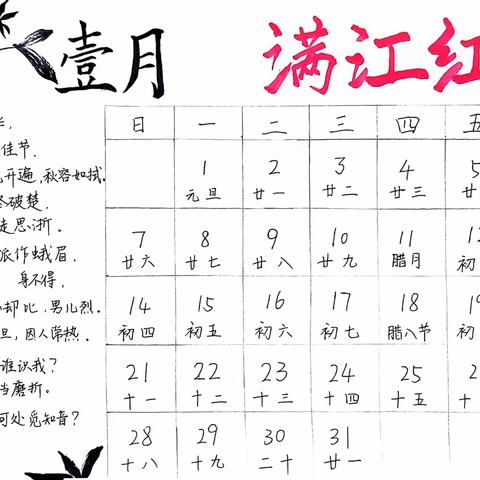 壹月
满江红
佳节.
开遍,秋容如拭。
破楚,
思浙。
派作蛾眉,
身不得,
却比,男儿烈。
因人常热。
谁识我?
当磨折。
何处觅知音?
日 一 二 三 四 五
1 2 3 4 5
元旦 廿一 廿二 廿三
7 8 9 10 11
廿六 廿七 廿八 廿九 腊月 初
14 15 16 17 18
初四 初五 初六 初七 腊八节 初
21 22 23 24 25
十一 十二 十三 十四 十五 十
28 29 30 31
十八 十九 二十 廿一